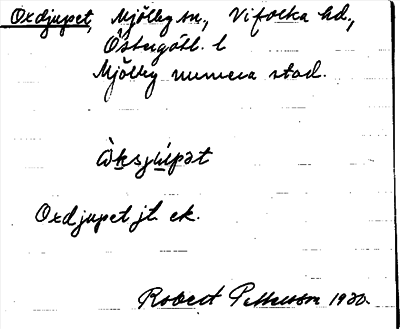 Oxdjupet, Mjölby sn., Vifolka hd.,
Östergötl. l
Mjölby numera stad.
Oxdjupet jl. ek.
Robert Pettersson 1930.